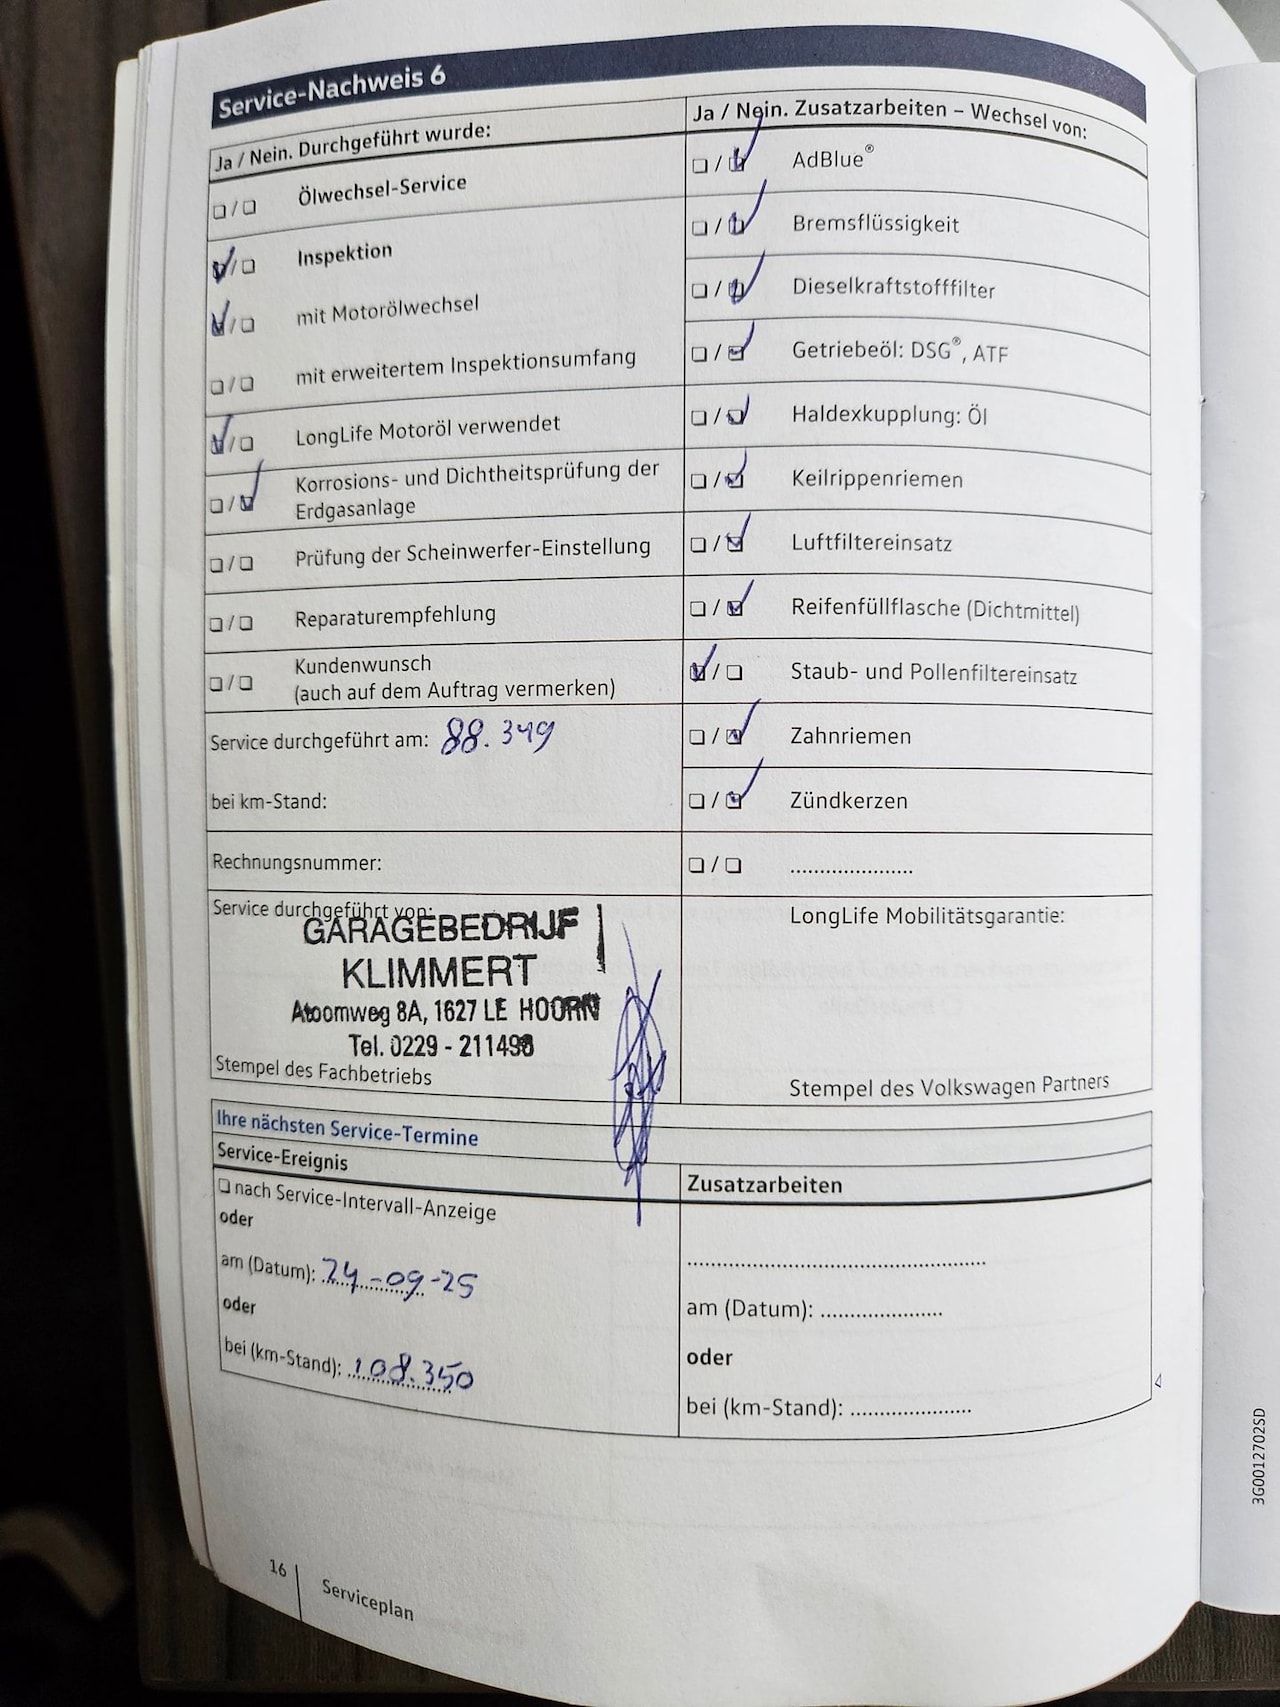 Service-Nachweis 6
Ja / Nein. Durchgeführt wurde:
❏ / ❏ Ölwechsel-Service
☑ / ❏ Inspektion
☑ / ❏ mit Motorölwechsel
❏ / ❏ mit erweitertem Inspektionsumfang
☑ / ❏ LongLife Motoröl verwendet
❏ / ☑ Korrosions- und Dichtheitsprüfung der
Erdgasanlage
❏ / ❏ Prüfung der Scheinwerfer-Einstellung
❏ / ❏ Reparaturempfehlung
❏ / ❏ Kundenwunsch
(auch auf dem Auftrag vermerken)
Service durchgeführt am: 88.349
bei km-Stand:
Rechnungsnummer:
Service durchgeführt von:
GARAGEBEDRIJF
KLIMMERT
Atoomweg 8A, 1627 LE HOORN
Tel. 0229 - 211498
Stempel des Fachbetriebs
Ja / Nein. Zusatzarbeiten – Wechsel von:
❏ / ☑ AdBlue®
❏ / ☑ Bremsflüssigkeit
❏ / ☑ Dieselkraftstofffilter
❏ / ☑ Getriebeöl: DSG®, ATF
❏ / ☑ Haldexkupplung: Öl
❏ / ☑ Keilrippenriemen
❏ / ☑ Luftfiltereinsatz
❏ / ☑ Reifenfüllflasche (Dichtmittel)
☑ / ❏ Staub- und Pollenfiltereinsatz
❏ / ☑ Zahnriemen
❏ / ☑ Zündkerzen
❏ / ❏ .....................
LongLife Mobilitätsgarantie:
Stempel des Volkswagen Partners
Ihre nächsten Service-Termine
Service-Ereignis
❏ nach Service-Intervall-Anzeige
oder
am (Datum): 24-09-25
oder
bei (km-Stand): 108.350
Zusatzarbeiten
..................................................
am (Datum): .....................
oder
bei (km-Stand): .....................
3G0012702SD
16
Serviceplan